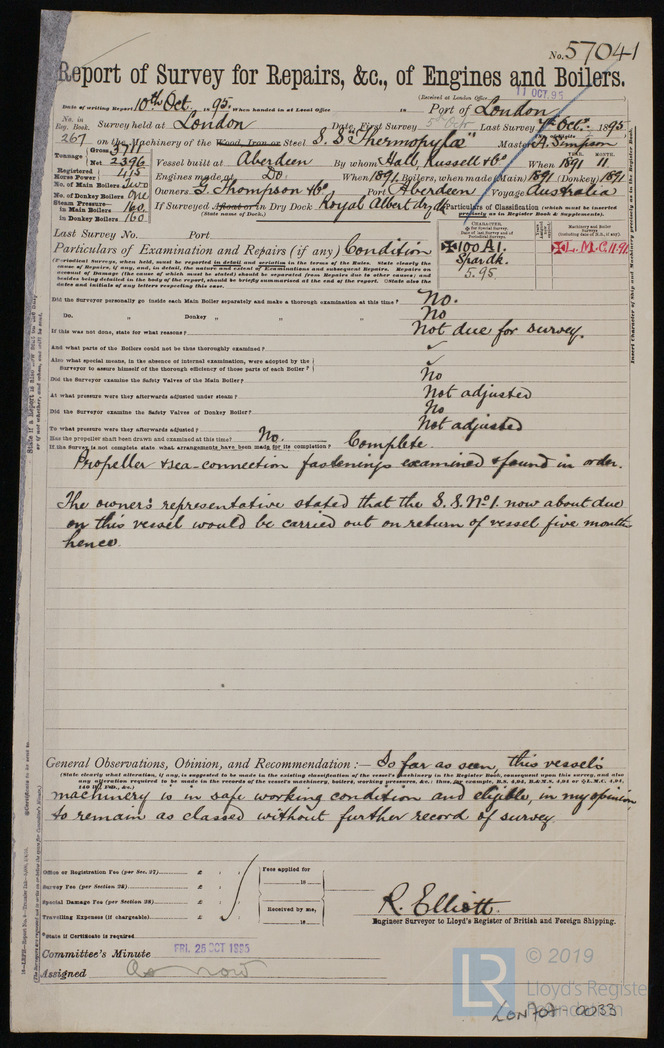 No. 57041
Report of Survey for Repairs, &c., of Engines and Boilers.
11 OCT. 95
(Received at London Office
Date of writing Report 10th Oct. 1895. When handed in at Local Office 18 Port of London
No. in Reg. Book. Survey held at London Date, First Survey 5th Oct. Last Survey 7th Oct. 1895
267 on the Machinery of the Wood, Iron or Steel S.S. "Thermopylae" Master A. Simpson
Tonnage Gross 3711 Net 2396 Vessel built at Aberdeen By whom Hall, Russell & Co When 1891 11
YEAR. MONTH.
Registered Horse Power Engines made at Do: When 1891 Boilers, when made (Main) 1891 (Donkey) 1891
No. of Main Boilers Two Owners G. Thompson & Co Port Aberdeen Voyage Australia
No. of Donkey Boilers One
Steam Pressure— in Main Boilers 160 If Surveyed Afloat or in Dry Dock Royal Albert dry dk
in Donkey Boilers 160 (State name of Dock.)
Particulars of Classification (which must be inserted precisely as in Register Book & Supplements).
Last Survey No. Port
CHARACTER.
Machinery and Boiler Survey
100 A1. L.M.C. 11.91
Spar dk.
5.95
Particulars of Examination and Repairs (if any) Condition
(Periodical Surveys, when held, must be reported in detail and seriatim in the terms of the Rules. State clearly the
Did the Surveyor personally go inside each Main Boiler separately and make a thorough examination at this time? No.
Do. Donkey " " " No
If this was not done, state for what reasons? Not due for survey.
And what parts of the Boilers could not be thus thoroughly examined? ✓
Also what special means, in the absence of internal examination, were adopted by the Surveyor to assure himself of the thorough efficiency of those parts of each Boiler? ✓
Did the Surveyor examine the Safety Valves of the Main Boiler? No
At what pressure were they afterwards adjusted under steam? Not adjusted
Did the Surveyor examine the Safety Valves of Donkey Boiler? No
To what pressure were they afterwards adjusted? Not adjusted
Has the propeller shaft been drawn and examined at this time? No.
If the Survey is not complete state what arrangements have been made for its completion? Complete.
Propeller & sea-connection fastenings examined & found in order.
The owner's representative stated that the S.S. No 1. now about due
on this vessel would be carried out on return of vessel five months
hence.
General Observations, Opinion, and Recommendation :— So far as seen, this vessel's
(State clearly what alteration, if any, is suggested to be made in the existing classification of the vessel's machinery in the Register Book, consequent upon this survey, and also
any alteration required to be made in the records of the vessel's machinery, boilers, working pressures, &c.; thus, for example, B.S. 4,94, B.&M.S. 4,94 or L.M.C. 4,94,
machinery is in safe working condition and eligible, in my opinion
to remain as classed without further record of survey.
Office or Registration Fee (per Sec. 27) £ : :
Survey Fee (per Section 28) £ : :
Special Damage Fee (per Section 28) £ : :
Travelling Expenses (if chargeable) £ : :
Fees applied for
18
Received by me,
18
R. Elliott.
Engineer Surveyor to Lloyd's Register of British and Foreign Shipping.
*State if Certificate is required
Committee's Minute FRI. 25 OCT 1895
Assigned As now
© 2019
LR
Lloyd's Register
Foundation
LON702-0033